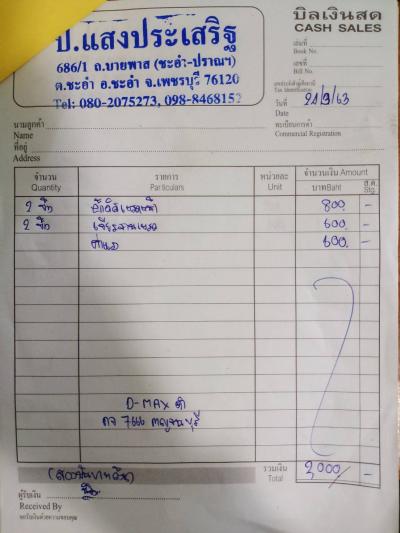 บิลเงินสด
CASH SALES
ป.แสงประเสริฐ
686/1 ถ.บายพาส (ชะอำ-ปราณฯ)
ต.ชะอำ อ.ชะอำ จ.เพชรบุรี 76120
Tel: 080-2075273, 098-8468157
เล่มที่
Book No.
เลขที่
Bill No.
เลขประจำตัวผู้เสียภาษี
Tax Identification
วันที่ 21/3/63
Date
ทะเบียนการค้า
Commercial Registration
นามลูกค้า
Name
ที่อยู่
Address
จำนวน รายการ หน่วยละ จำนวนเงิน Amount
Quantity Particulars Unit บาทBaht ส.ต. Stg.
2 800. -
2 600. -
600. -
D-MAX ดำ
7666 กาญจนบุรี
รวมเงิน 2,000/ -
Total
ผู้รับเงิน
Received By
ขอรับเงินด้วยความขอบคุณ